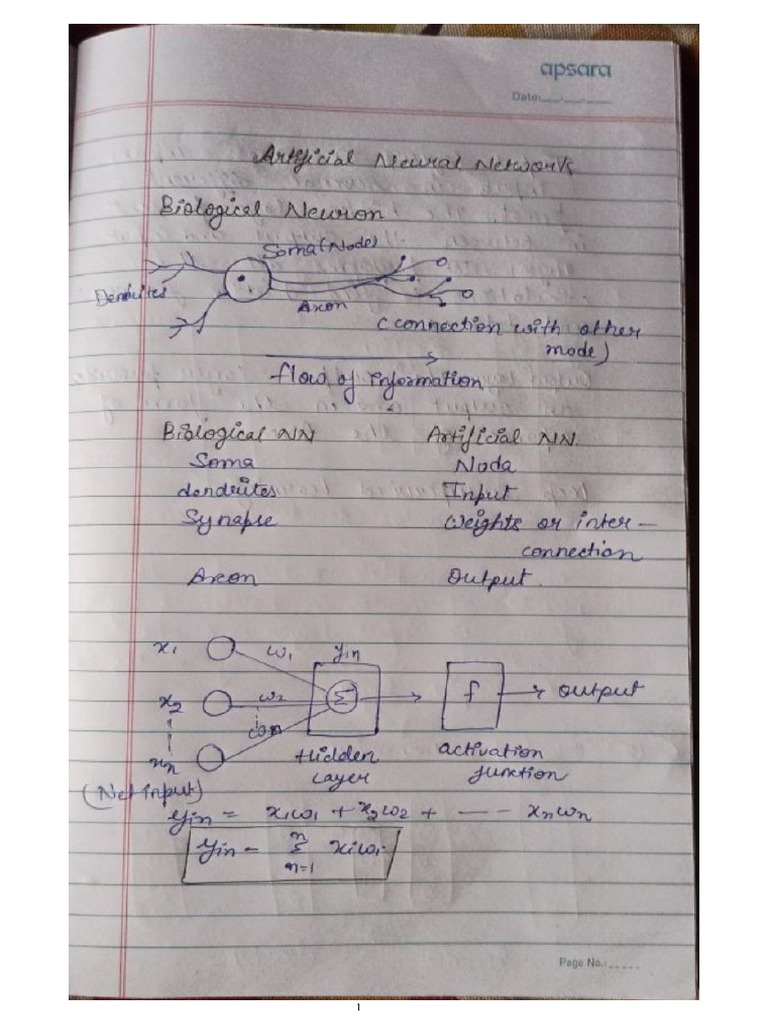 apsara
Date:
Artificial Neural Networks
Biological Neuron
Soma (Node)
Dendrites
Axon
(connection with other
mode)
flow of information
Biological NN Artificial NN.
Soma Noda
dendrites Input
Synapse Weights or inter-
connection
Axon Output.
x1 w1 yin
x2 w2 Σ f output
xn
Hidden activation
Layer function
(Net input)
yin = x1w1 + x2w2 + --- xnwn
yin = n Σ n=1 xiwi
Page No.:
1